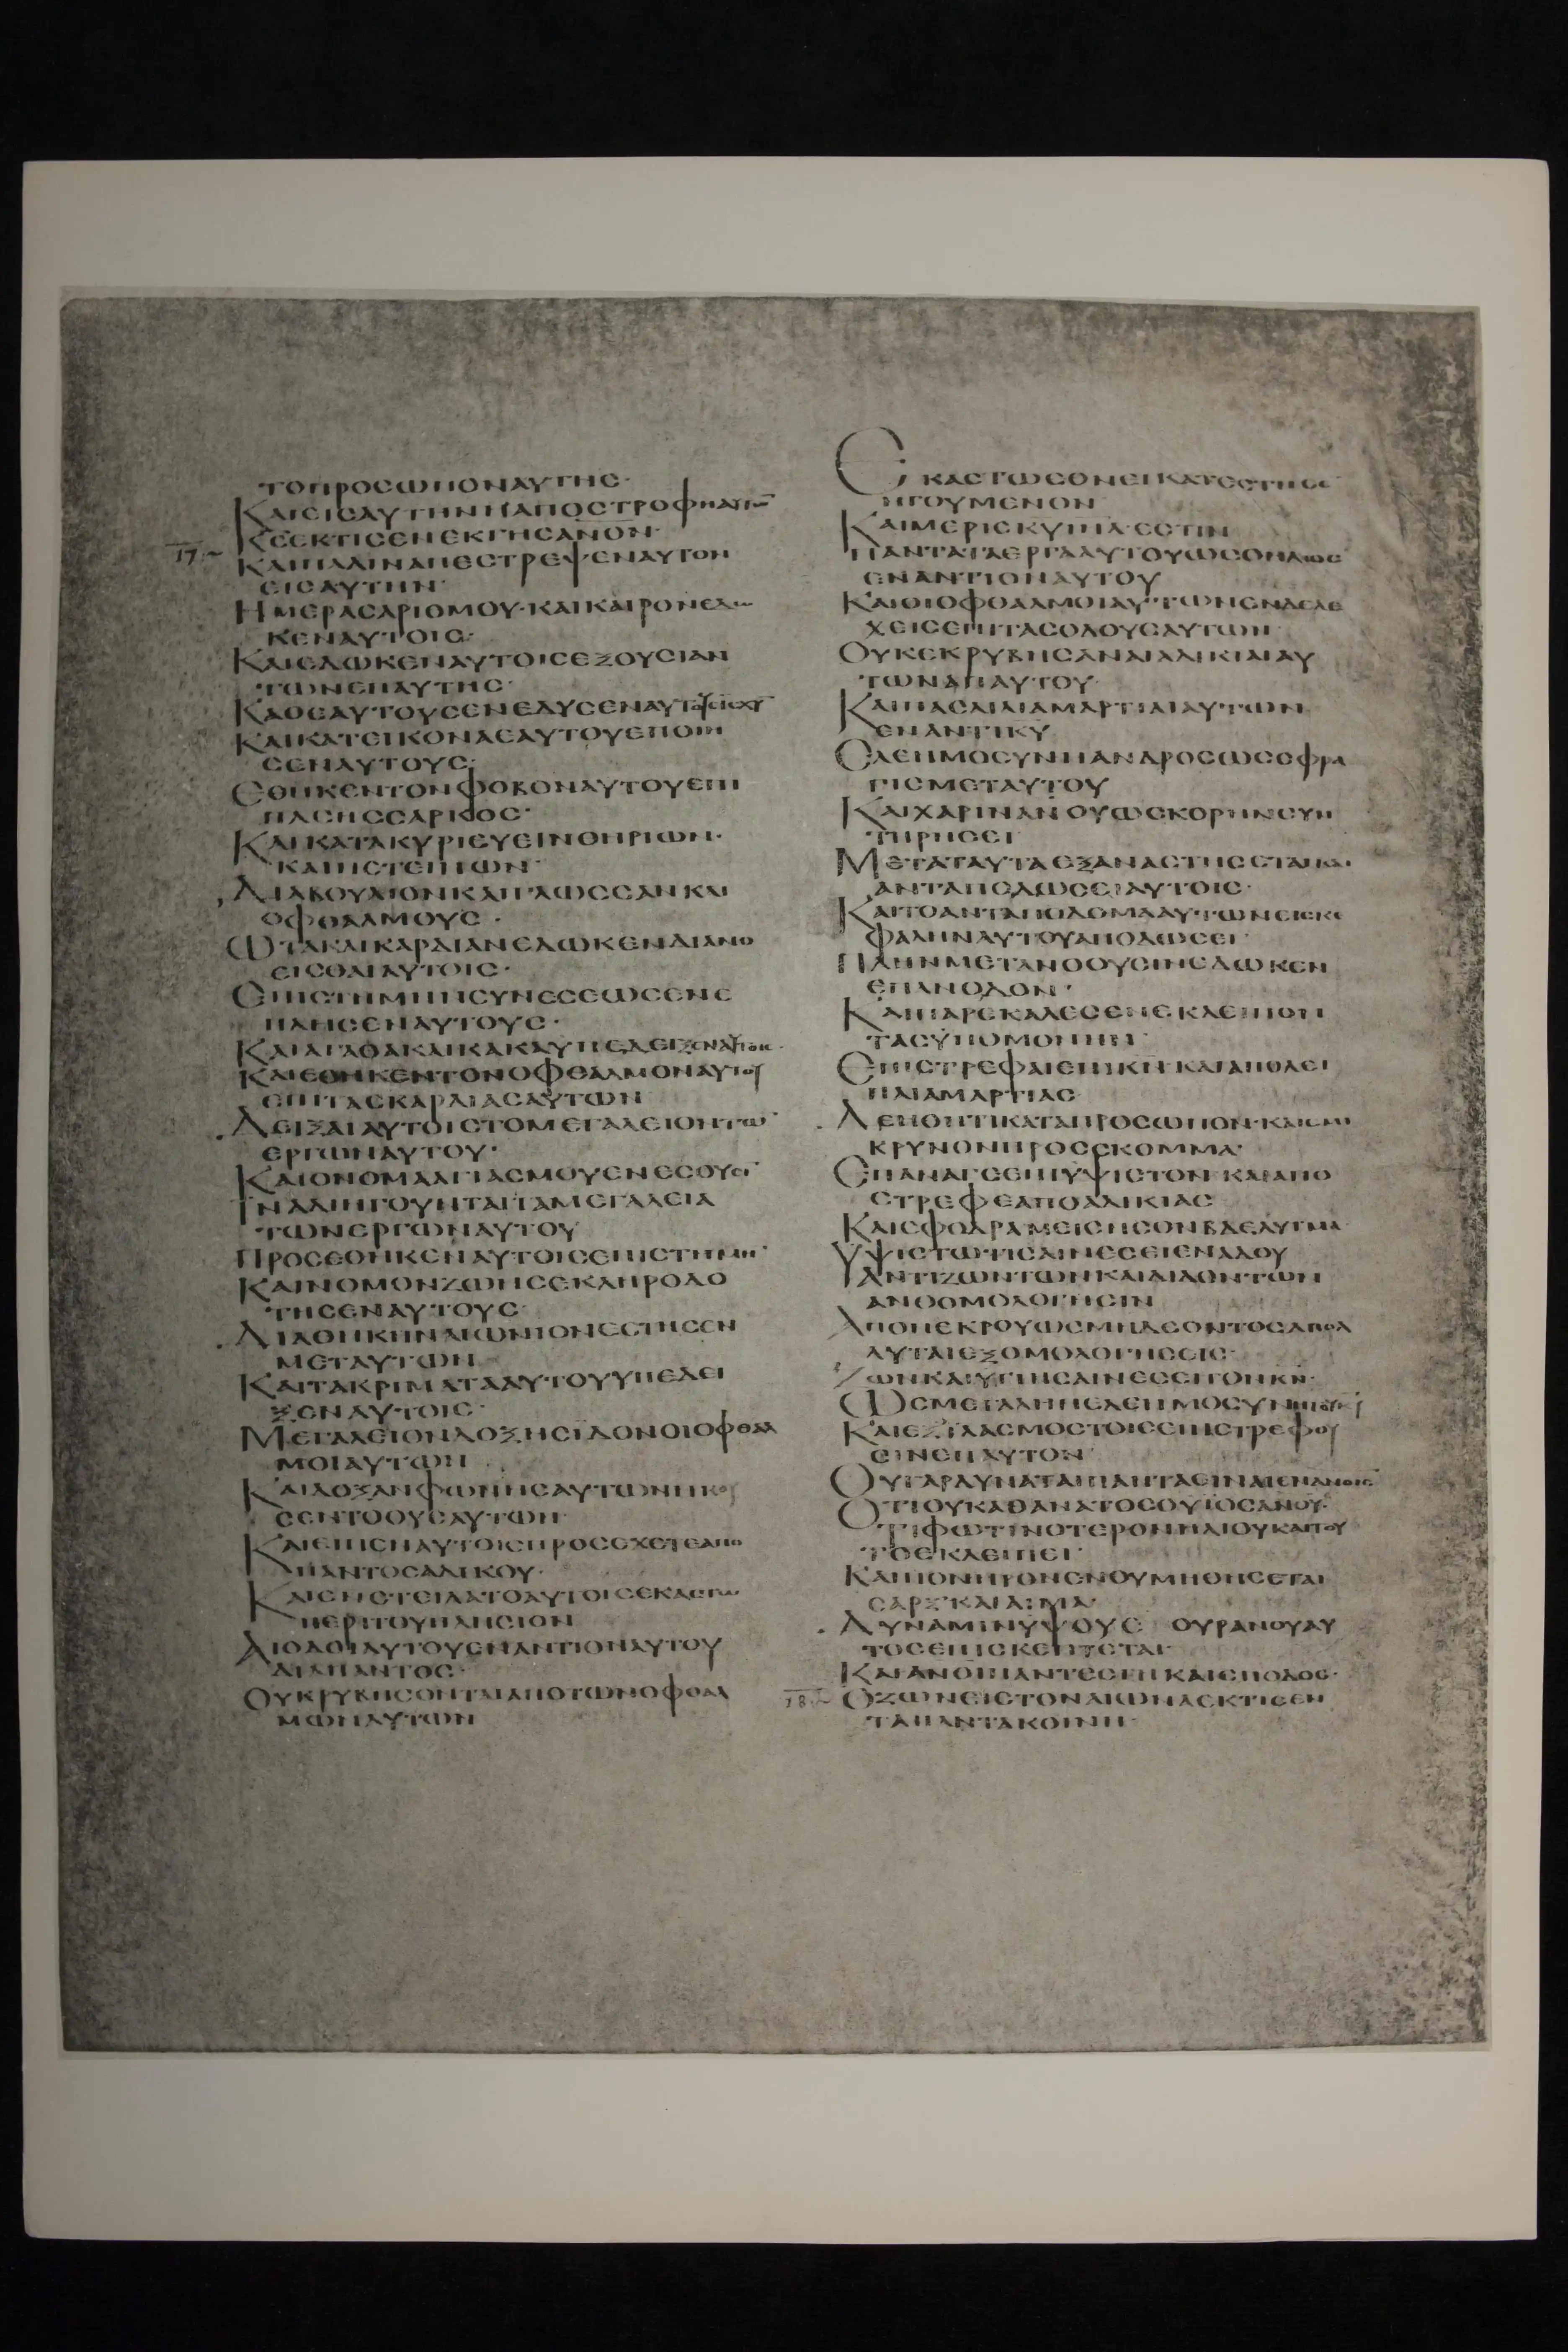 ΤΟΠΡΟCΩΠΟΝΑΥΤΗC·
ΚΑΙΕΙCΑΥΤΗΝΗΑΠΟCΤΡΟΦΗΑΥΤΩ̅
ΚCΕΚΤΙCΕΝΕΚΓΗCΑΝΟΝ·
17.
ΚΑΙΠΑΛΙΝΑΠΕCΤΡΕΨΕΝΑΥΤΟΝ
ΕΙCΑΥΤΗΝ·
ΗΜΕΡΑCΑΡΙΘΜΟΥ·ΚΑΙΚΑΙΡΟΝΕΔΩ
ΚΕΝΑΥΤΟΙC·
ΚΑΙΕΔΩΚΕΝΑΥΤΟΙCΕΞΟΥCΙΑΝ
ΤΩΝΕΠΑΥΤΗC·
ΚΑΘΕΑΥΤΟΥCΕΝΕΔΥCΕΝΑΥΤΟΥCΙCΧΥ̅
ΚΑΙΚΑΤΕΙΚΟΝΑΕΑΥΤΟΥΕΠΟΙΗ
CΕΝΑΥΤΟΥC·
ΕΘΗΚΕΝΤΟΝΦΟΒΟΝΑΥΤΟΥΕΠΙ
ΠΑCΗCCΑΡΚΟC·
ΚΑΙΚΑΤΑΚΥΡΙΕΥΕΙΝΘΗΡΙΩΝ·
ΚΑΙΠΕΤΕΙΝΩΝ·
ΔΙΑΒΟΥΛΙΟΝΚΑΙΓΛΩCCΑΝΚΑΙ
ΟΦΘΑΛΜΟΥC·
ΩΤΑΚΑΙΚΑΡΔΙΑΝΕΔΩΚΕΝΔΙΑΝΟ
ΕΙCΘΑΙΑΥΤΟΙC·
ΕΠΙCΤΗΜΗΝCΥΝΕCΕΩCΕΝΕ
ΠΛΗCΕΝΑΥΤΟΥC·
ΚΑΙΑΓΑΘΑΚΑΙΚΑΚΑΥΠΕΔΕΙΞΕΝΑΥΤΟΙC·
ΚΑΙΕΘΗΚΕΝΤΟΝΟΦΘΑΛΜΟΝΑΥΤΟΥ
ΕΠΙΤΑCΚΑΡΔΙΑCΑΥΤΩΝ
ΔΕΙΞΑΙΑΥΤΟΙCΤΟΜΕΓΑΛΕΙΟΝΤΩ̅
ΕΡΓΩΝΑΥΤΟΥ·
ΚΑΙΟΝΟΜΑΑΓΙΑCΜΟΥΕΝΕCΟΥCΙ̅
ΙΝΑΔΙΗΓΟΥΝΤΑΙΤΑΜΕΓΑΛΕΙΑ
ΤΩΝΕΡΓΩΝΑΥΤΟΥ
ΠΡΟCΕΘΗΚΕΝΑΥΤΟΙCΕΠΙCΤΗΜΗ̅
ΚΑΙΝΟΜΟΝΖΩΗCΕΚΛΗΡΟΔΟ
ΤΗCΕΝΑΥΤΟΥC·
ΔΙΑΘΗΚΗΝΑΙΩΝΙΟΝΕCΤΗCΕΝ
ΜΕΤΑΥΤΩΝ
ΚΑΙΤΑΚΡΙΜΑΤΑΑΥΤΟΥΥΠΕΔΕΙ
ΞΕΝΑΥΤΟΙC·
ΜΕΓΑΛΕΙΟΝΔΟΞΗCΪΔΟΝΟΙΟΦΘΑΛ
ΜΟΙΑΥΤΩΝ
ΚΑΙΔΟΞΑΝΦΩΝΗCΑΥΤΩΝΗΚΟΥ
CΕΝΤΟΟΥCΑΥΤΩΝ·
ΚΑΙΕΙΠΕΝΑΥΤΟΙCΠΡΟCΕΧΕΤΕΑΠΟ
ΠΑΝΤΟCΑΔΙΚΟΥ·
ΚΑΙΕΝΕΤΕΙΛΑΤΟΑΥΤΟΙCΕΚΑCΤΩ
ΠΕΡΙΤΟΥΠΛΗCΙΟΝ
ΑΙΟΔΟΙΑΥΤΟΥΕΝΑΝΤΙΟΝΑΥΤΟΥ
ΔΙΑΠΑΝΤΟC·
ΟΥΚΡΥΒΗCΟΝΤΑΙΑΠΟΤΩΝΟΦΘΑΛ
ΜΩΝΑΥΤΩΝ
ΕΚΑCΤΩΕΘΝΕΙΚΑΤΕCΤΗCΕ
ΗΓΟΥΜΕΝΟΝ
ΚΑΙΜΕΡΙCΚΥΙΗΛΕCΤΙΝ
ΠΑΝΤΑΤΑΕΡΓΑΑΥΤΟΥΩCΟΗΛΙΟC
ΕΝΑΝΤΙΟΝΑΥΤΟΥ
ΚΑΙΟΙΟΦΘΑΛΜΟΙΑΥΤΩΝΕΝΔΕΛΕ
ΧΕΙCΕΠΙΤΑCΟΔΟΥCΑΥΤΩΝ
ΟΥΚΕΚΡΥΒΗCΑΝΑΙΑΔΙΚΙΑΙΑΥ
ΤΩΝΑΠΑΥΤΟΥ·
ΚΑΙΠΑCΑΙΑΙΑΜΑΡΤΙΑΙΑΥΤΩΝ
ΕΝΑΝΤΙΚΥ
ΕΛΕΗΜΟCΥΝΗΑΝΔΡΟCΩCCΦΡΑ
ΓΙCΜΕΤΑΥΤΟΥ
ΚΑΙΧΑΡΙΝΑΝΟΥΩCΚΟΡΗΝCΥΝ
ΤΗΡΗCΕΙ
ΜΕΤΑΤΑΥΤΑΕΞΑΝΑCΤΗCΕΤΑΙΚΑΙ
ΑΝΤΑΠΟΔΩCΕΙΑΥΤΟΙC·
ΚΑΙΤΟΑΝΤΑΠΟΔΟΜΑΑΥΤΩΝΕΙCΚΕ
ΦΑΛΗΝΑΥΤΟΥΑΠΟΔΩCΕΙ·
ΠΛΗΝΜΕΤΑΝΟΟΥCΙΝΕΔΩΚΕΝ
ΕΠΑΝΟΔΟΝ·
ΚΑΙΠΑΡΕΚΑΛΕCΕΝΕΚΛΕΙΠΟΝ
ΤΑCΫΠΟΜΟΝΗΝ·
ΕΠΙCΤΡΕΦΑΙΕΠΙΚΝ·ΚΑΙΑΠΟΛΕΙ
ΠΑΙΑΜΑΡΤΙΑC
ΔΕΗΘΗΤΙΚΑΤΑΠΡΟCΩΠΟΝ·ΚΑΙCΜΙ
ΚΡΥΝΟΝΠΡΟCCΚΟΜΜΑ·
ΕΠΑΝΑΓΕΕΠΙΫΨΙCΤΟΝ·ΚΑΙΑΠΟ
CΤΡΕΦΕΑΠΟΑΔΙΚΙΑC
ΚΑΙCΦΟΔΡΑΜΕΙCΗCΟΝΒΔΕΛΥΓΜΑ
ΥΨΙCΤΩΤΙCΑΙΝΕCΕΙΕΝΑΔΟΥ
ΑΝΤΙΖΩΝΤΩΝΚΑΙΔΙΔΟΝΤΩΝ
ΑΝΘΟΜΟΛΟΓΗCΙΝ
ΑΠΟΝΕΚΡΟΥΩCΜΗΔΕΟΝΤΟCΑΠΟΛ
ΛΥΤΑΙΕΞΟΜΟΛΟΓΗCΙC·
ΖΩΝΚΑΙΥΓΙΗCΑΙΝΕCΕΙΤΟΝΚΝ·
ΩCΜΕΓΑΛΗΗΕΛΕΗΜΟCΥΝΗΤΟΥΚΥ
ΚΑΙΕΞΪΛΑCΜΟCΤΟΙCΕΠΙCΤΡΕΦΟΥ
CΙΝΕΠΑΥΤΟΝ·
ΟΥΓΑΡΔΥΝΑΤΑΙΠΑΝΤΑΕΙΝΑΙΕΝΑΝΟΙC
ΟΤΙΟΥΚΑΘΑΝΑΤΟCΟΥΪΟCΑΝΟΥ·
ΤΙΦΩΤΙΝΟΤΕΡΟΝΗΛΙΟΥΚΑΙΤΟΥ
ΤΟΕΚΛΕΙΠΕΙ·
ΚΑΙΠΟΝΗΡΟΝΕΝΘΥΜΗΘΗCΕΤΑΙ
CΑΡΞΚΑΙΑΙΜΑ·
ΔΥΝΑΜΙΝΥΨΟΥC ΟΥΡΑΝΟΥΑΥ
ΤΟCΕΠΙCΚΕΠΤΕΤΑΙ·
ΚΑΙΑΝΟΙΠΑΝΤΕCΓΗΚΑΙCΠΟΔΟC·
18.
ΟΖΩΝΕΙCΤΟΝΑΙΩΝΑΕΚΤΙCΕΝ
ΤΑΠΑΝΤΑΚΟΙΝΗ·